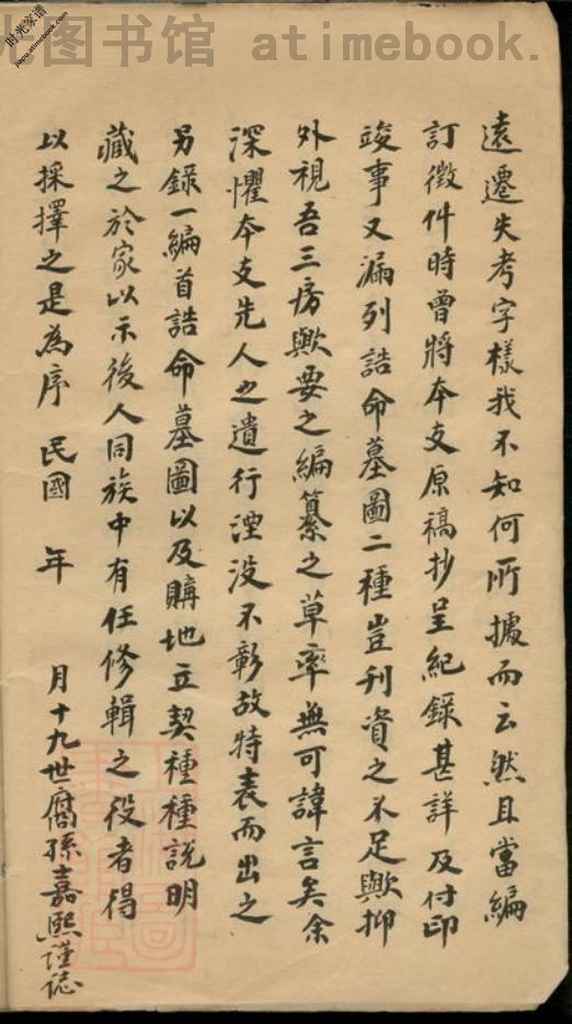 光图书馆 atimebook.
时光家谱
jiapu.atimebook.com
遠遷失考字樣我不知何所據而云然且當編
訂徵件時曾將本支原稿抄呈紀錄甚詳及付印
竣事又漏列誥命墓圖二種豈刊資之不足歟抑
外視吾三房歟要之編纂之草率無可諱言矣余
深懼本支先人之遺行湮没不彰故特表而出之
另錄一編首誥命墓圖以及購地立契種種說明
藏之於家以示後人同族中有任修輯之役者得
以採擇之是為序 民國 年 月十九世裔孫嘉熙謹誌